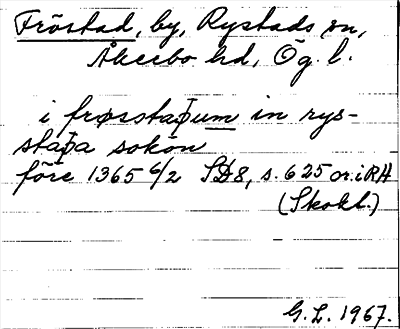 Fröstad, by, Rystads sn,
Åkerbo hd, Ög. l.
i frøsstaþum in rys-
staþa sokön
före 1365 6/2 SD8, s. 625 or. i RA
(Skokl.)
G. L. 1967.